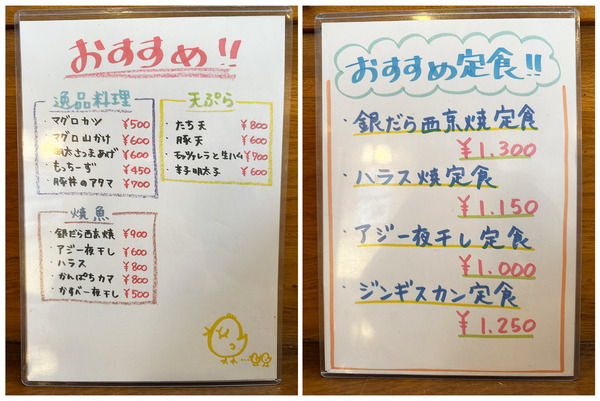 おすすめ!!
逸品料理
マグロカツ ¥500
マグロ山かけ ¥600
明太さつまあげ ¥600
もっちーず ¥450
豚丼のアタマ ¥700
天ぷら
・たち天 ¥800
・豚天 ¥600
・モッツァレラと生ハム ¥700
・辛子明太子 ¥600
焼魚
・銀だら西京焼 ¥900
・アジ一夜干し ¥600
・ハラス ¥800
・かんぱちカマ ¥800
・かすべ一夜干し ¥500
おすすめ定食!!
・銀だら西京焼定食
¥1.300
・ハラス焼定食
¥1.150
・アジ一夜干し定食
¥1.000
・ジンギスカン定食
¥1.250